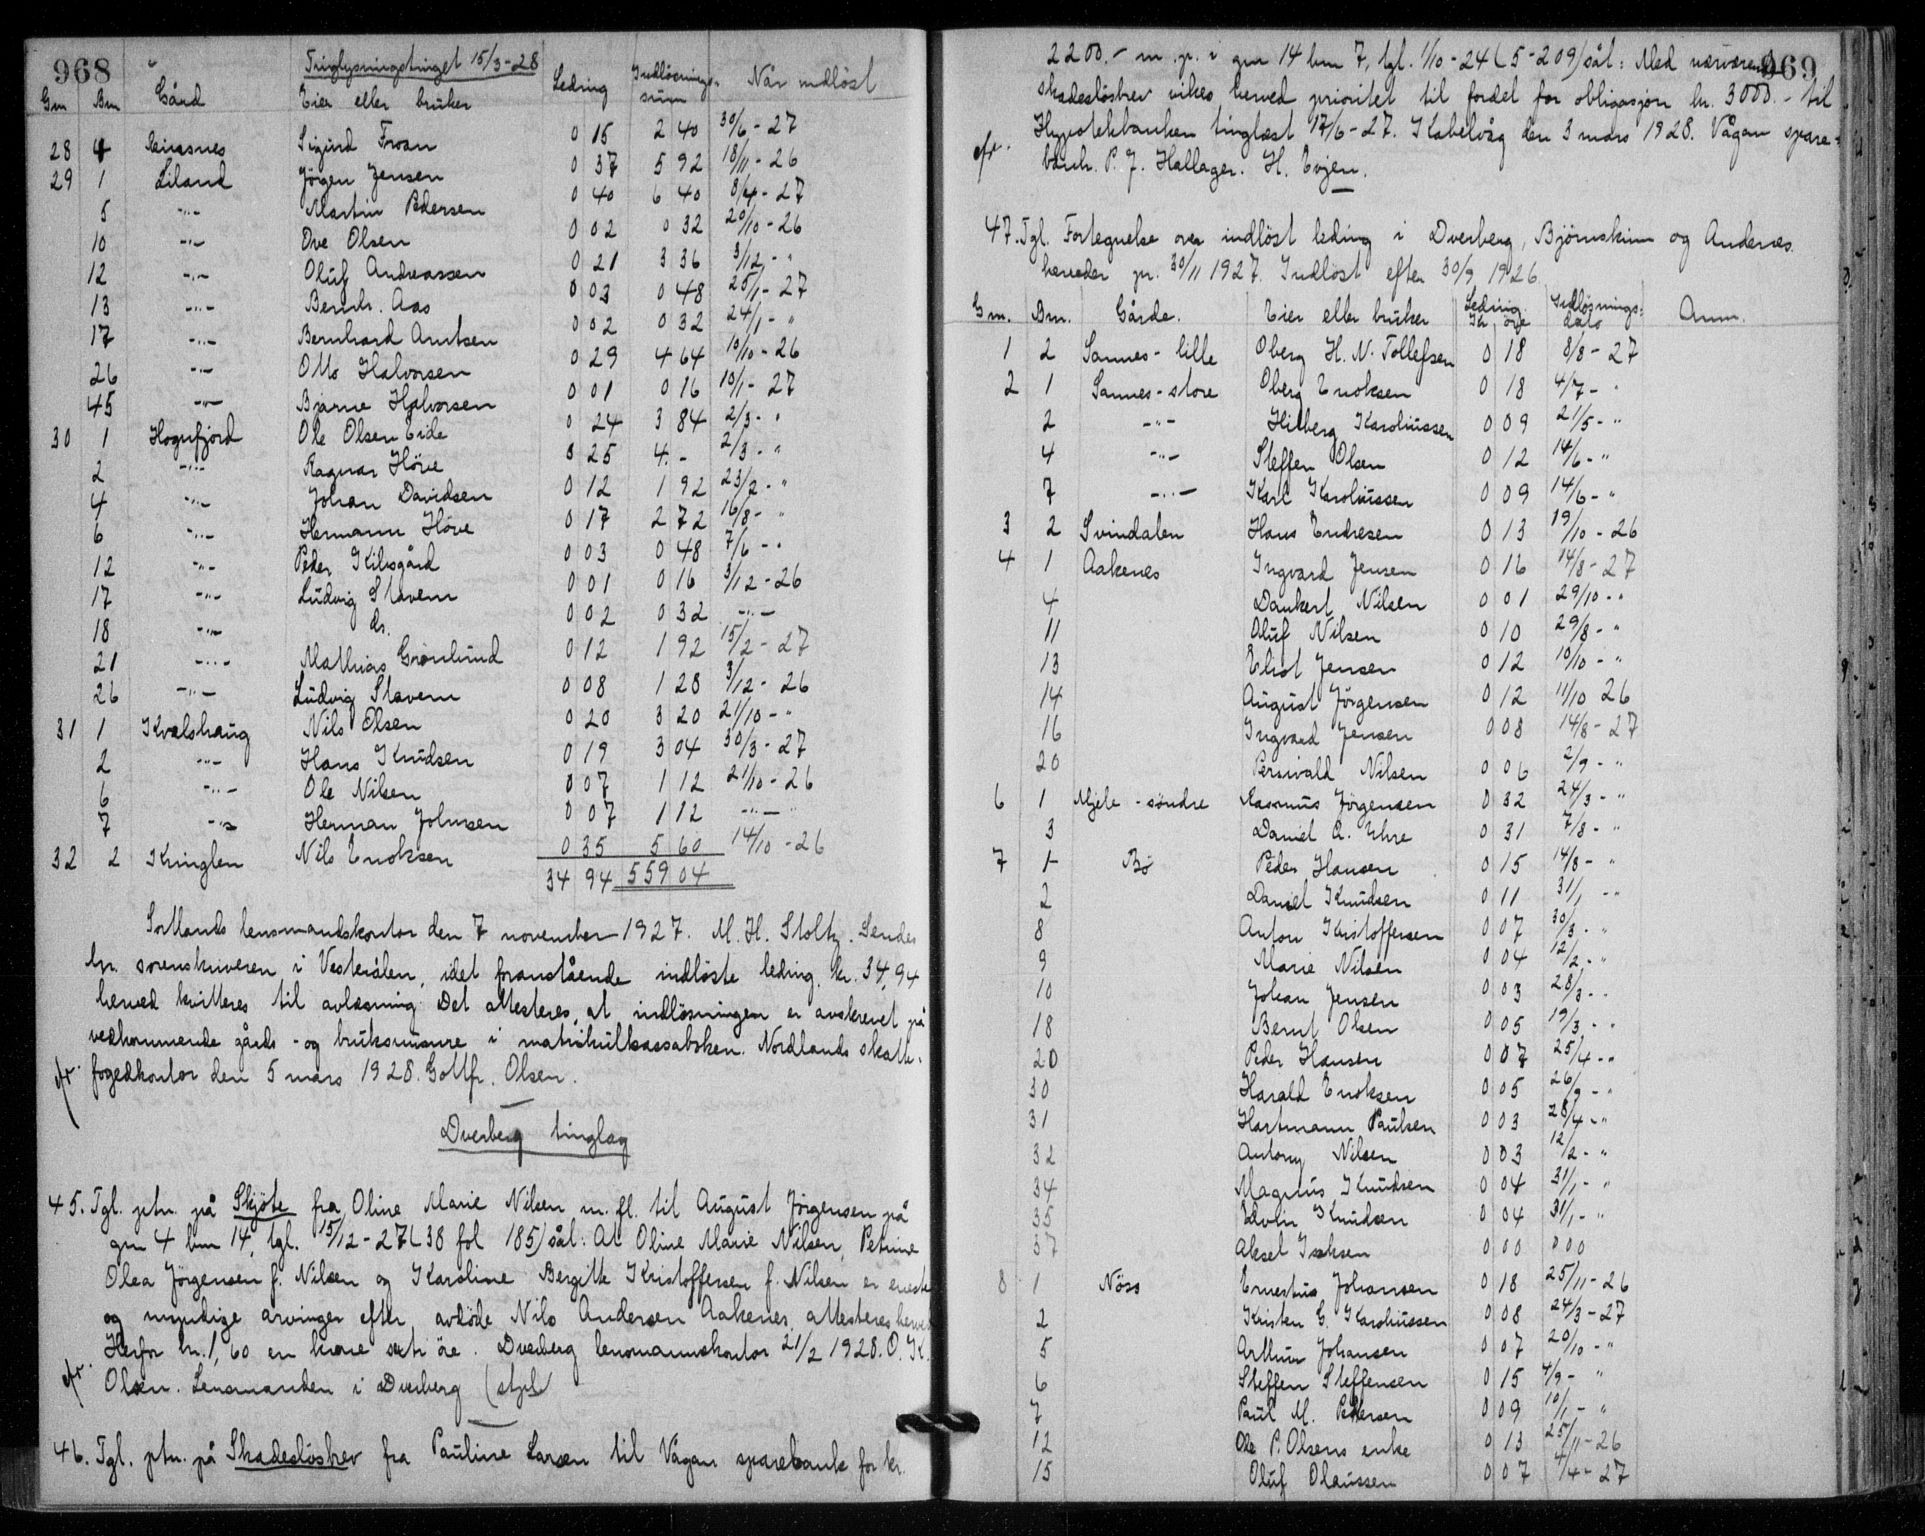 968
Tinglysningstinget 15/3-28
Gnr Bnr Gård Eier eller bruker Leding Indlösningssum Når indlöst
28 4 Sigurd Froan 0 15 2 40 30/6-27
29 1 Liland Jörgen Jensen 0 37 5 92 18/11-26
5 -"- Martin Pedersen 0 40 6 40 8/4-27
10 -"- Ove Olsen 0 02 0 32 20/10-26
12 -"- Oluf Andreassen 0 21 3 36 3/12-"
13 -"- Bernh. Aas 0 03 0 48 25/1-27
17 -"- Bernhard Arntsen 0 02 0 32 24/1-"
26 -"- Otto Halvorsen 0 29 4 64 10/10-26
45 -"- Bjarne Halvorsen 0 01 0 16 10/1-27
30 1 Hognfjord Ole Olsen Eide 0 24 3 84 2/3-"
2 -"- Ragnar Höve 0 25 4.- 2/3-"
4 -"- Johan Davidsen 0 12 1 92 23/2-"
6 -"- Hermann Höve 0 17 2 72 16/8-"
12 -"- Peder Kilsgård 0 03 0 48 7/6-"
17 -"- Ludvig Stavem 0 01 0 16 3/12-26
18 -"- ds. 0 02 0 32 -"-
21 -"- Mathias Grönlund 0 12 1 92 15/2-27
26 -"- Ludvig Stavem 0 08 1 28 3/12-26
31 1 Kvalshaug Nils Olsen 0 20 3 20 21/10-"
2 -"- Hans Knudsen 0 19 3 04 30/3-27
6 -"- Ole Nilsen 0 07 1 12 21/10-26
7 -"- Herman Johnsen 0 07 1 12 -"-
32 2 Kringlen Nils Enoksen 0 35 5 60 14/10-26
34 94 559 04
Sortlands lensmandskontor den 7 november 1927. M. H. Stoltz. Sendes
hr. sorenskriveren i Vesterålen, idet foranstående indlöste leding kr. 34,94
herved kvitteres til avlæsning. Det attesteres, at indlösningen er avskrevet på
vedkommende gårds- og bruksnumre i matrikulkassaboken. Nordlands skatte-
fogedkontor den 5 mars 1928. Gottfr. Olsen.
Dverberg tinglag
45. Tgl. ptn. på Skjöte fra Oline Marie Nilsen m. fl. til August Jörgensen på
gnr 4 bnr 14, tgl. 15/12-27 (38 fol 185) sål: At Oline Marie Nilsen, Petrine
Olea Jörgensen f. Nilsen og Karoline Bergitte Kristoffersen f. Nilsen er eneste
og myndige arvinger efter avdöde Nils Andersen Aakenes attesteres herved
Herfor kr. 1,60 en krone seksti öre. Dverberg lensmannskontor 21/2 1928. O. K.
Olsen. Lensmanden i Dverberg (stpl.)
46. Tgl. ptn. på Skadeslösbrev fra Pauline Larsen til Vågan sparebank for kr.
969
2200,- m. p. i gnr 14 bnr 7, tgl. 1/10-24 (5-209) sål: Med nærværende
skadeslösbrev vikes herved prioritet til fordel for obligasjon kr. 3000.- til
Hypotekbanken tinglæst 17/6-27. Kabelvåg den 3 mars 1928. Vågan spare-
bank. P. J. Hallager. H. Evjen.
47. Tgl. Fortegnelse over indlöst leding i Dverberg, Bjørnskinn og Andenes
herreder pr. 30/11 1927. Indlöst efter 30/9 1926.
Gnr. Bnr. Gårde. Eier eller bruker Leding Kr öre Indlösnings-dato Anm.
1 2 Sannes-lille Oberg H. N. Tollefsen 0 18 8/8-27
2 1 Sannes-store Oberg Enoksen 0 18 4/7-"
2 -"- Hilberg Karoliussen 0 09 21/5-"
4 -"- Steffen Olsen 0 12 14/6-"
7 -"- Karl Karoliussen 0 09 14/6-"
3 2 Svindalen Hans Endresen 0 13 19/10-26
4 1 Aakenes Ingvard Jensen 0 16 14/8-27
4 Dankert Nilsen 0 01 29/10-"
11 Oluf Nilsen 0 10 29/8-"
13 Eliot Jensen 0 12 10/10-"
14 August Jörgensen 0 12 11/10 26
16 Ingvard Jensen 0 08 14/8-27
20 Persivald Nilsen 0 06 2/9-"
6 1 Mjele-söndre Rasmus Jörgensen 0 32 24/3-"
3 Daniel A. Uhre 0 31 7/8-"
7 1 Bö Peder Hansen 0 15 14/8-"
2 Daniel Knudsen 0 11 31/1 -"
8 Anton Kristoffersen 0 07 30/3-"
9 Marie Nilsen 0 04 12/2-"
10 Johan Jensen 0 03 28/3-"
18 Bernt Olsen 0 05 19/3-"
20 Peder Hansen 0 07 25/4-"
30 Harald Enoksen 0 05 26/9-"
31 Hartmann Paulsen 0 03 28/4-"
32 Antony Nilsen 0 03 12/2-"
34 Magnus Knudsen 0 04 31/1-"
35 Edvin Knudsen 0 04 31/1-"
37 Aksel Isaksen 0 00 000
8 1 Nöss Ernestus Johansen 0 18 25/11-26
2 Kristen E. Karoliussen 0 08 24/3-27
5 Arthur Johansen 0 07 20/10-"
6 Steffen Steffensen 0 15 4/9-"
7 Paul M. Pedersen 0 09 10/1-"
12 Ole P. Olsens enke 0 13 25/11-26
15 Oluf Olaussen 0 07 4/4-27